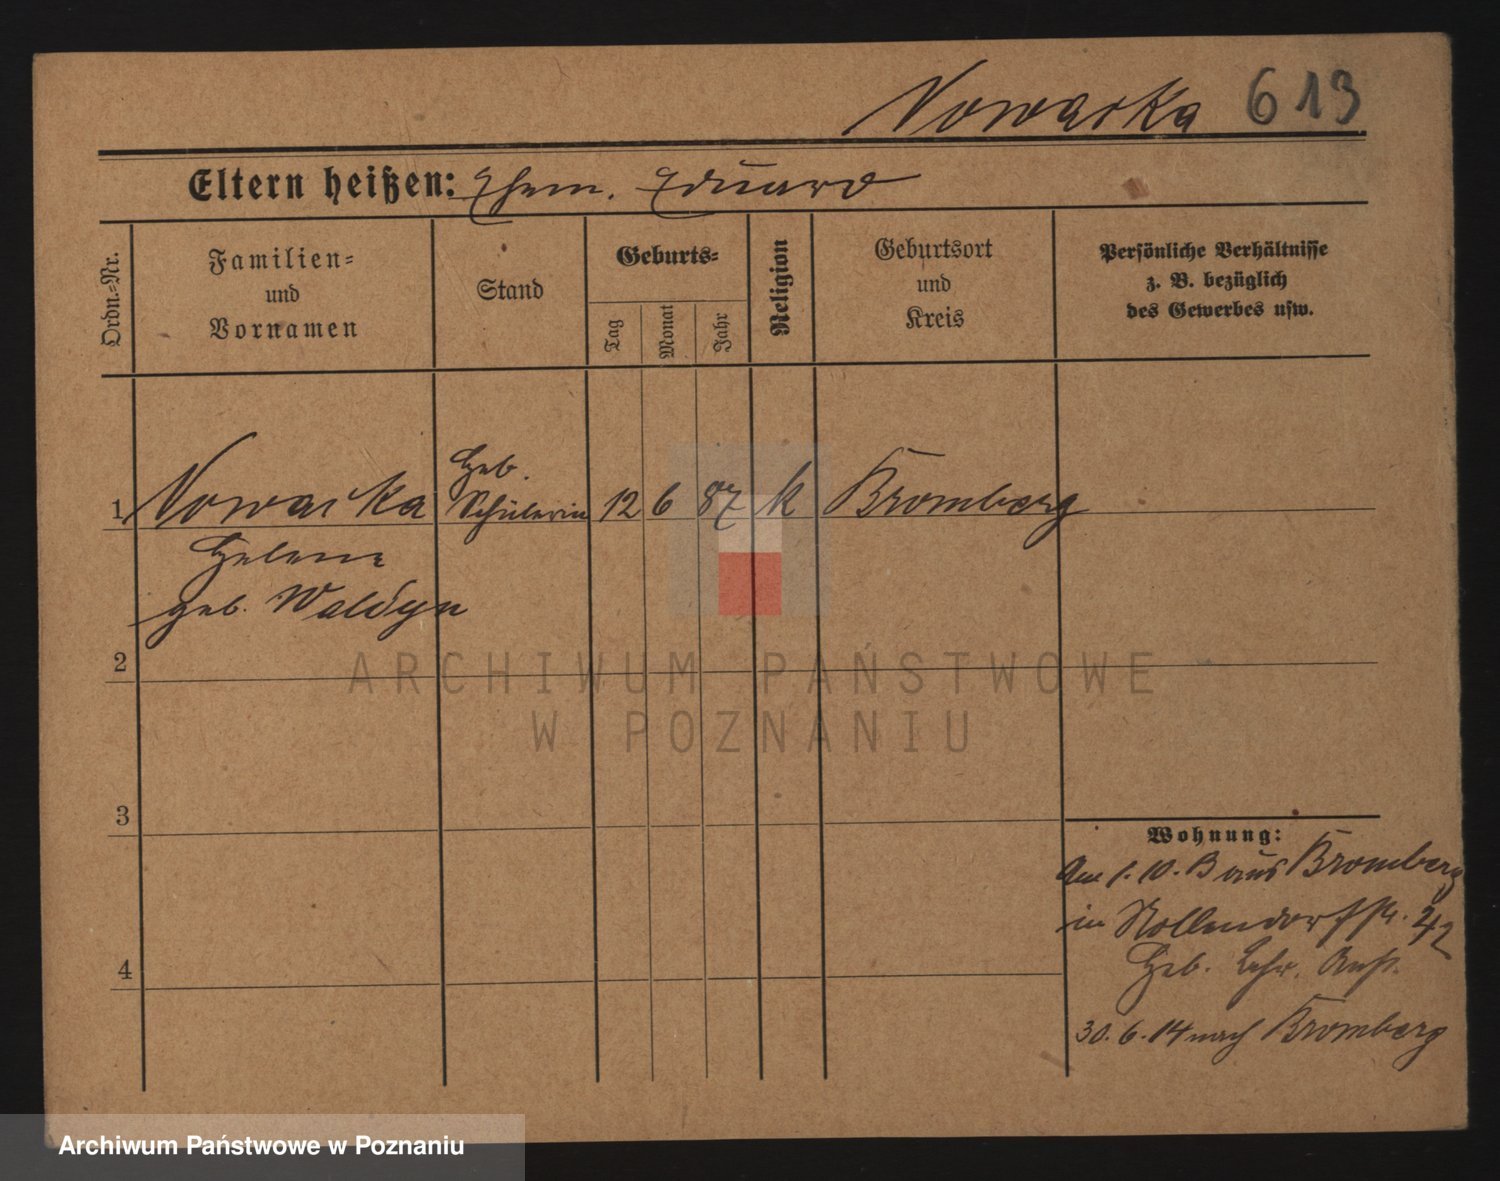 Nowacka 613
Eltern heißen: Ehem. Eduard
Ordn.=Nr.
Familien=
und
Vornamen
Stand
Geburts=
Tag
Monat
Jahr
Religion
Geburtsort
und
Kreis
Persönliche Verhältnisse
z. B. bezüglich
des Gewerbes usw.
1 Nowacka Heb. Schülerin 12 6 87 k Bromberg
Helene
geb. Waldyn
2
ARCHIWUM PAŃSTWOWE
W POZNANIU
3
Wohnung:
Am 1.10.13 aus Bromberg
in Nollendorfstr. 42
Heb. Lehr. Anst.
4
30.6.14 nach Bromberg
Archiwum Państwowe w Poznaniu